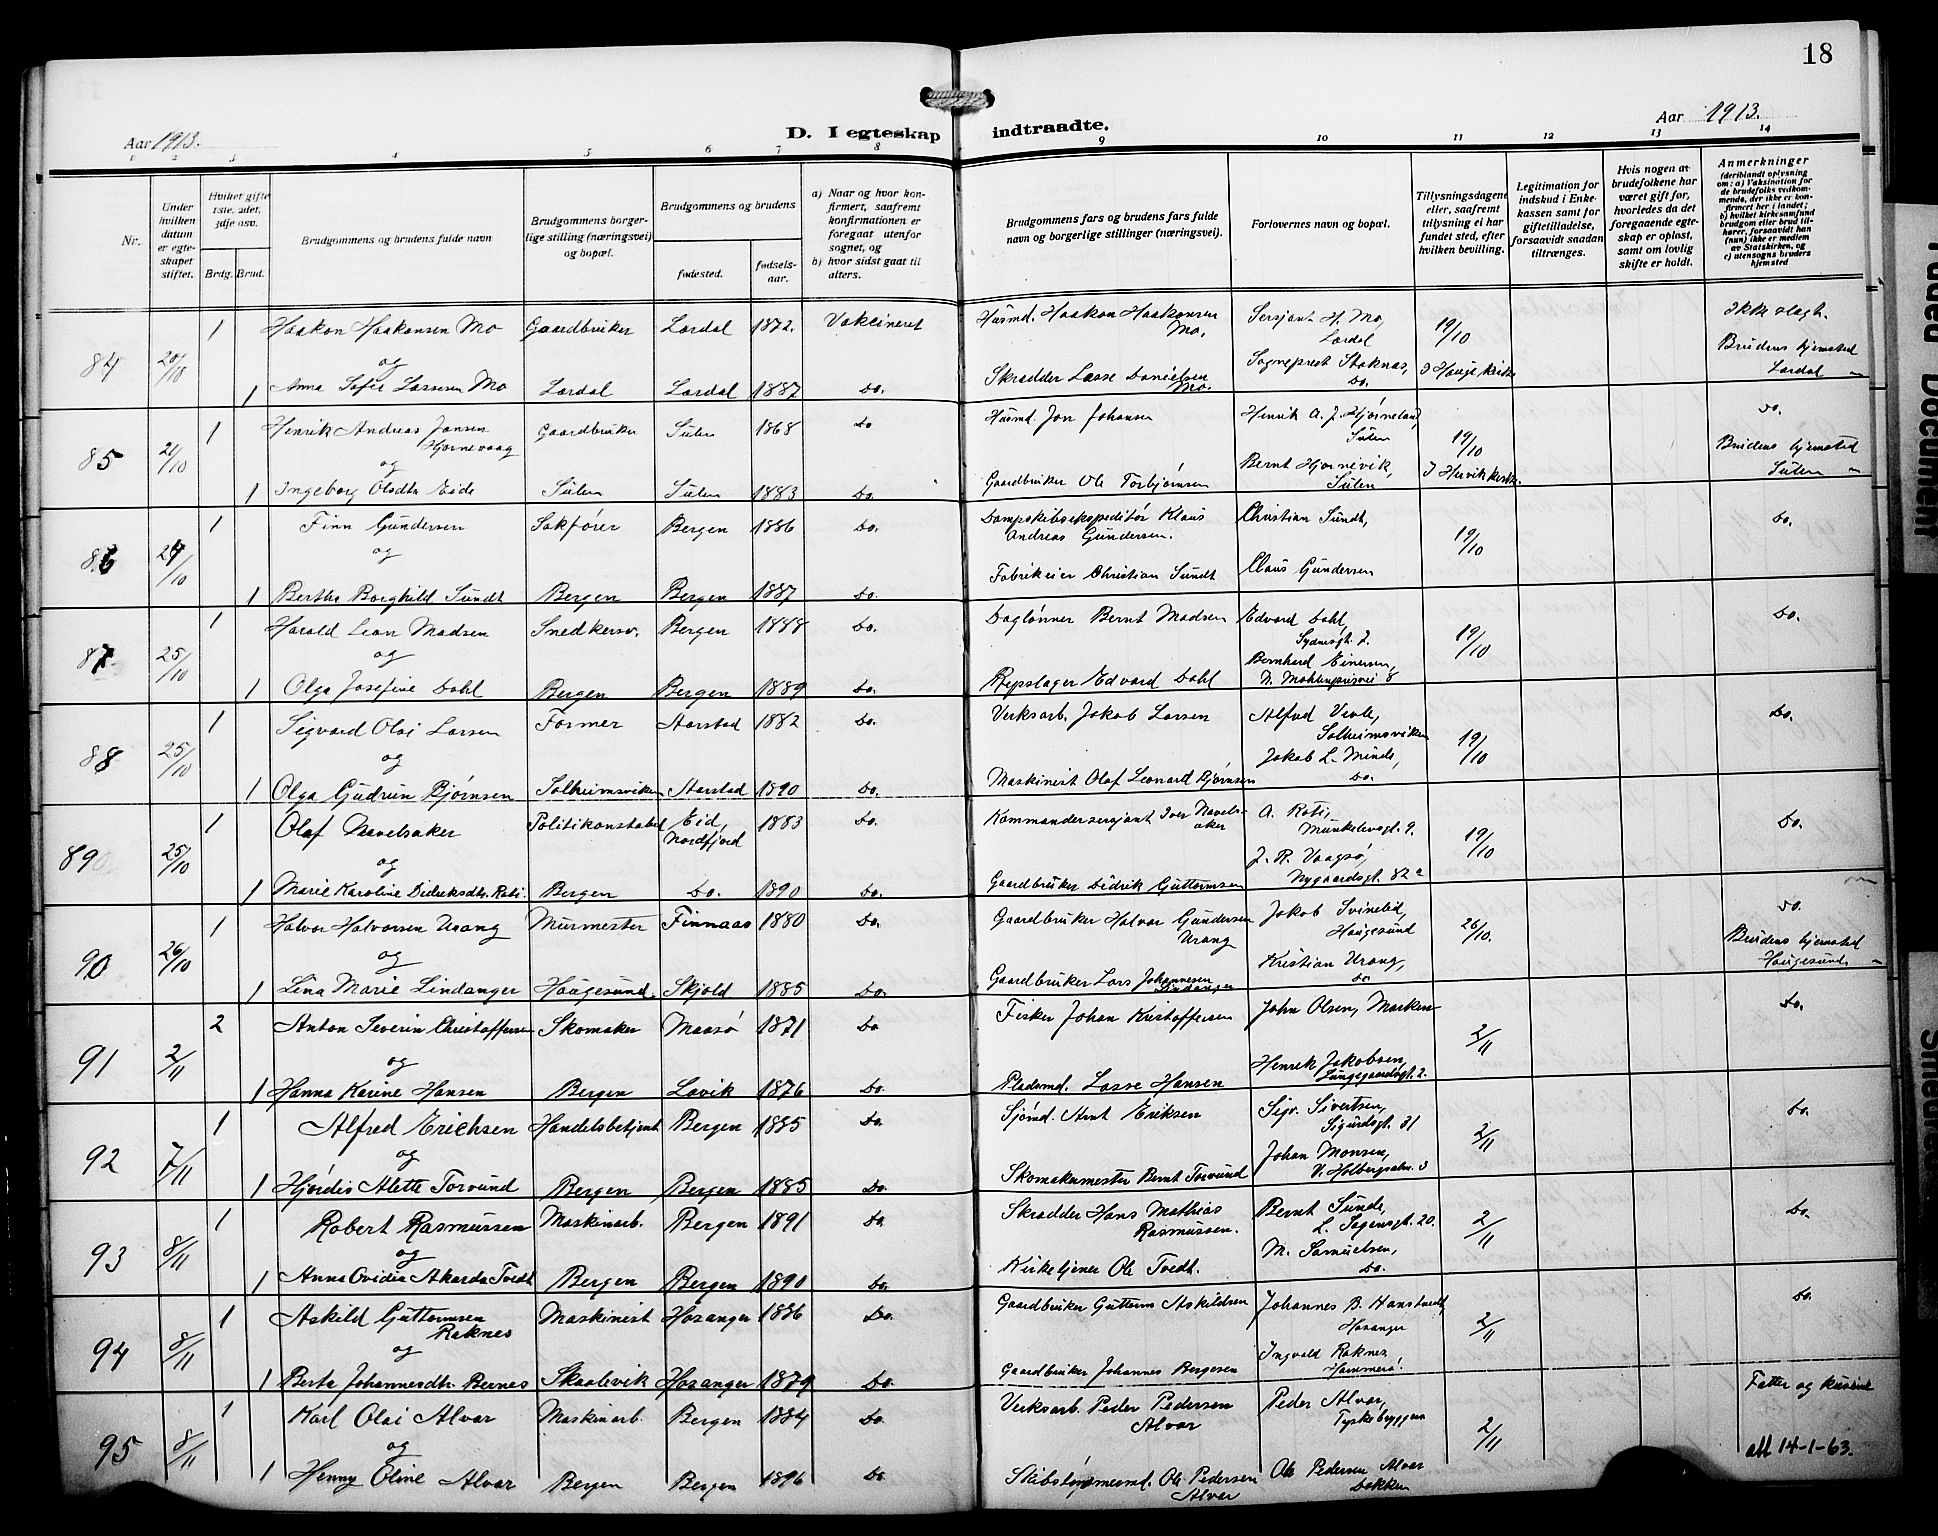 18
Aar 1913.
D. I egteskap indtraadte.
Aar 1913.
1 2 3 4 5 6 7 8 9 10 11 12 13 14
Nr.
Under hvilken datum er egteskapet stiftet.
Hvilket gifte
Brdg. Brud.
Brudgommens og brudens fulde navn
Brudgommens borgerlige stilling (næringsvei) og bopæl.
Brudgommens og brudens
fødested.
fødselsaar.
a) Naar og hvor konfirmert, saafremt konfirmationen er foregaat utenfor sognet, og
b) hvor sidst gaat til alters.
Brudgommens fars og brudens fars fulde navn og borgerlige stillinger (næringsvei).
Forlovernes navn og bopæl.
Tillysningsdagene eller, saafremt tillysning ei har fundet sted, efter hvilken bevilling.
Legitimation for indskud i Enkekassen samt for giftetilladelse, forsaavidt saadan tiltrænges.
Hvis nogen av brudefolkene har været gift før, hvorledes da det foregaaende egteskap er opløst, samt om lovlig skifte er holdt.
Anmerkninger (deriblandt oplysning om: a) Vaksination for de brudefolks vedkommende, der ikke er konfirmert her i landet; b) hvilket kirkesamfund brudgom eller brud tilhører, forsaavidt han (hun) ikke er medlem av Statskirken, og c) utensogns bruders hjemsted
84 20/10 1 Haakon Haakonsen Mo Gaardbruker Lærdal 1872. Vakcineret Husmd. Haakon Haakonsen Mo, Sersjant H. Mo, Lærdal 19/10 Ikke slegt.
og
1 Anna Sofie Lassesen Mo Lærdal Lærdal 1887 Do. Skrædder Lasse Danielsen Mo. Sogneprest Stoknæs, Do. I Hauge kirke Brudens hjemsted Lærdal
85 21/10 1 Henrik Andreas Jansen Hjørnevaag Gaardbruker Sulen 1868 Do Husmd. Jon Johansen Henrik A. J. Hjørneland, Sulen 19/10 Do.
og
1 Ingeborg Olsdtr. Eide Sulen Sulen 1883 Do. Gaardbruker Ole Torbjørnsen Bernt Hjørnevik, Sulen Brudens hjemsted Sulen
86 24/10 1 Finn Gundersen Sakfører Bergen 1886 Do. Dampskibsekspeditør Klaus Andreas Gundersen. Christian Sundt, 19/10 Do.
og
1 Bertha Borghild Sundt Bergen Bergen 1887 Do. Fabrikeier Christian Sundt Claus Gundersen
87 25/10 1 Harald Leon Madsen Snedkersv. Bergen 1888 Do. Daglønner Bernt Madsen Edvard Dahl, 19/10 Do.
og
1 Olga Josefine Dahl Bergen Bergen 1889 Do. Repslager Edvard Dahl Bernhard Einersen, N. Møhlenprisvei 8
88 25/10 1 Sigvard Olai Larsen Former Aarstad 1882 Do. Verksarb. Jakob Larsen Alfred Vevle, Solheimsviken 19/10 Do.
og
1 Olga Gudrun Bjørnsen Solheimsviken Aarstad 1890 Do. Maskinist Olaf Leonard Bjørnsen Jakob L. Minde, Do.
89 25/10 1 Olaf Navelsaker Politikonstabel Eid, Nordfjord 1883 Do. Kommandersersjant Iver Navelsaker A. Roti, Munkelivsgt. 9. 19/10 Do.
og
1 Marie Karoline Didriksdtr. Roti. Bergen Do. 1890 Do. Gaardbruker Didrik Guttormsen J. R. Vaagsø, Nygaardsgt. 82a
90 26/10 1 Halvor Halvorsen Urang Murmester Finnaas 1880 Do. Gaardbruker Halvor Gundersen Urang Jakob Svineli, Haugesund 26/10. Do.
og
1 Lina Marie Lindanger Haugesund. Skjold 1885 Do. Gaardbruker Lars Johannesen Lindanger Kristian Urang, Do Brudens hjemsted Haugesund
91 2/11 2 Anton Severin Christoffersen Skomaker Maasø 1871 Do Fisker Johan Kristoffersen John Olsen, Marken 2/11 Do.
og
1 Hanna Karine Hansen Bergen Lavik 1876 Do. Pladsmd. Lasse Hansen Henrik Jakobsen, Lungegaardsgt. 2.
92 7/11 1 Alfred Erichsen Handelsbetjent Bergen 1885 Do. Sjømd. Arnt Eriksen Sigv. Sivertsen, Sigurdsgt. 31 2/11 Do.
og
1 Hjørdis Alette Torvund Bergen Bergen 1885 Do. Skomakermester Bernt Torvund Johan Monsen, V. Holbergsalm. 3
93 8/11 1 Robert Rasmussen Maskinarb. Bergen 1891 Do. Skrædder Hans Mathias Rasmussen. Bernt Sunde, L. Sagensgt. 20. 2/11 Do.
og
1 Anna Ovidia Akarda Tvedt Bergen Bergen 1890 Do. Kirketjener Ole Tvedt. M. Samuelsen, Do.
94 8/11 1 Askild Guttormsen Raknes Maskinist Hosanger 1886 Do. Gaardbruker Guttorm Askildsen Johannes B. Hanstvedt, Hosanger 2/11 Do.
og
1 Berta Johannesdtr. Bernes Skaalevik Hosanger 1879 Do. Gaardbruker Johannes Bergesen Ingvald Raknes Hammersl.
95 8/11 1 Karl Olai Alvær Maskinarb. Bergen 1884 Do. Verksarb. Peder Pedersen Alvær Peder Alvær, Tyskebryggen 2/11 Fætter og kusine
og
1 Henny Oline Alvær Bergen Bergen 1896 Do. Ole Pedersen Alvær Ole Pedersen Alvær Dokken att 14-1-63.